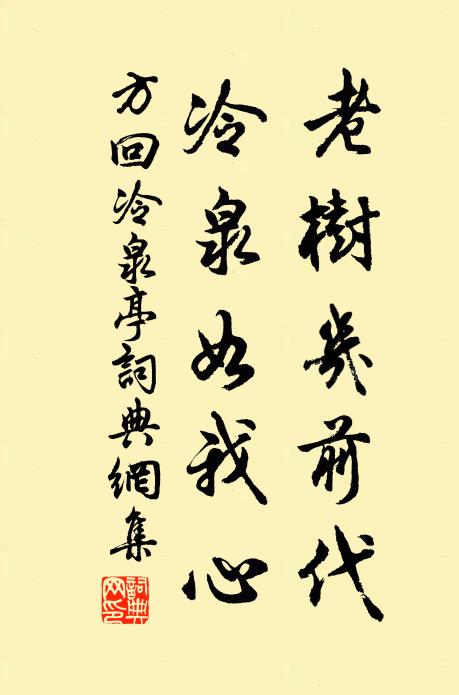 老樹幾前代
冷泉如我心
方回冷泉亭詞典網集
詞典網印